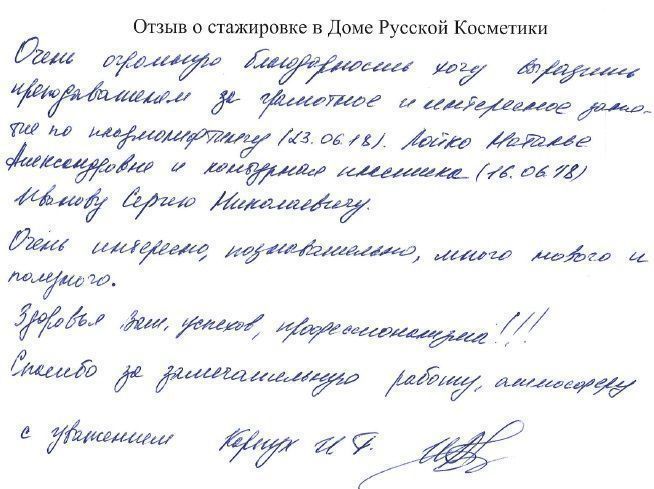 Отзыв о стажировке в Доме Русской Косметики
Очень огромную благодарность хочу выразить
преподавателям за грамотное и интересное заня-
тие по плазмолифтингу (23.06.18). Лойко Наталье
Александровне и контурная пластика (16.06.18)
Иванову Сергею Николаевичу.
Очень интересно, познавательно, много нового и
полезного.
Здоровья Вам, успехов, профессионализма!!!
Спасибо за замечательную работу, атмосферу
с уважением И Г.